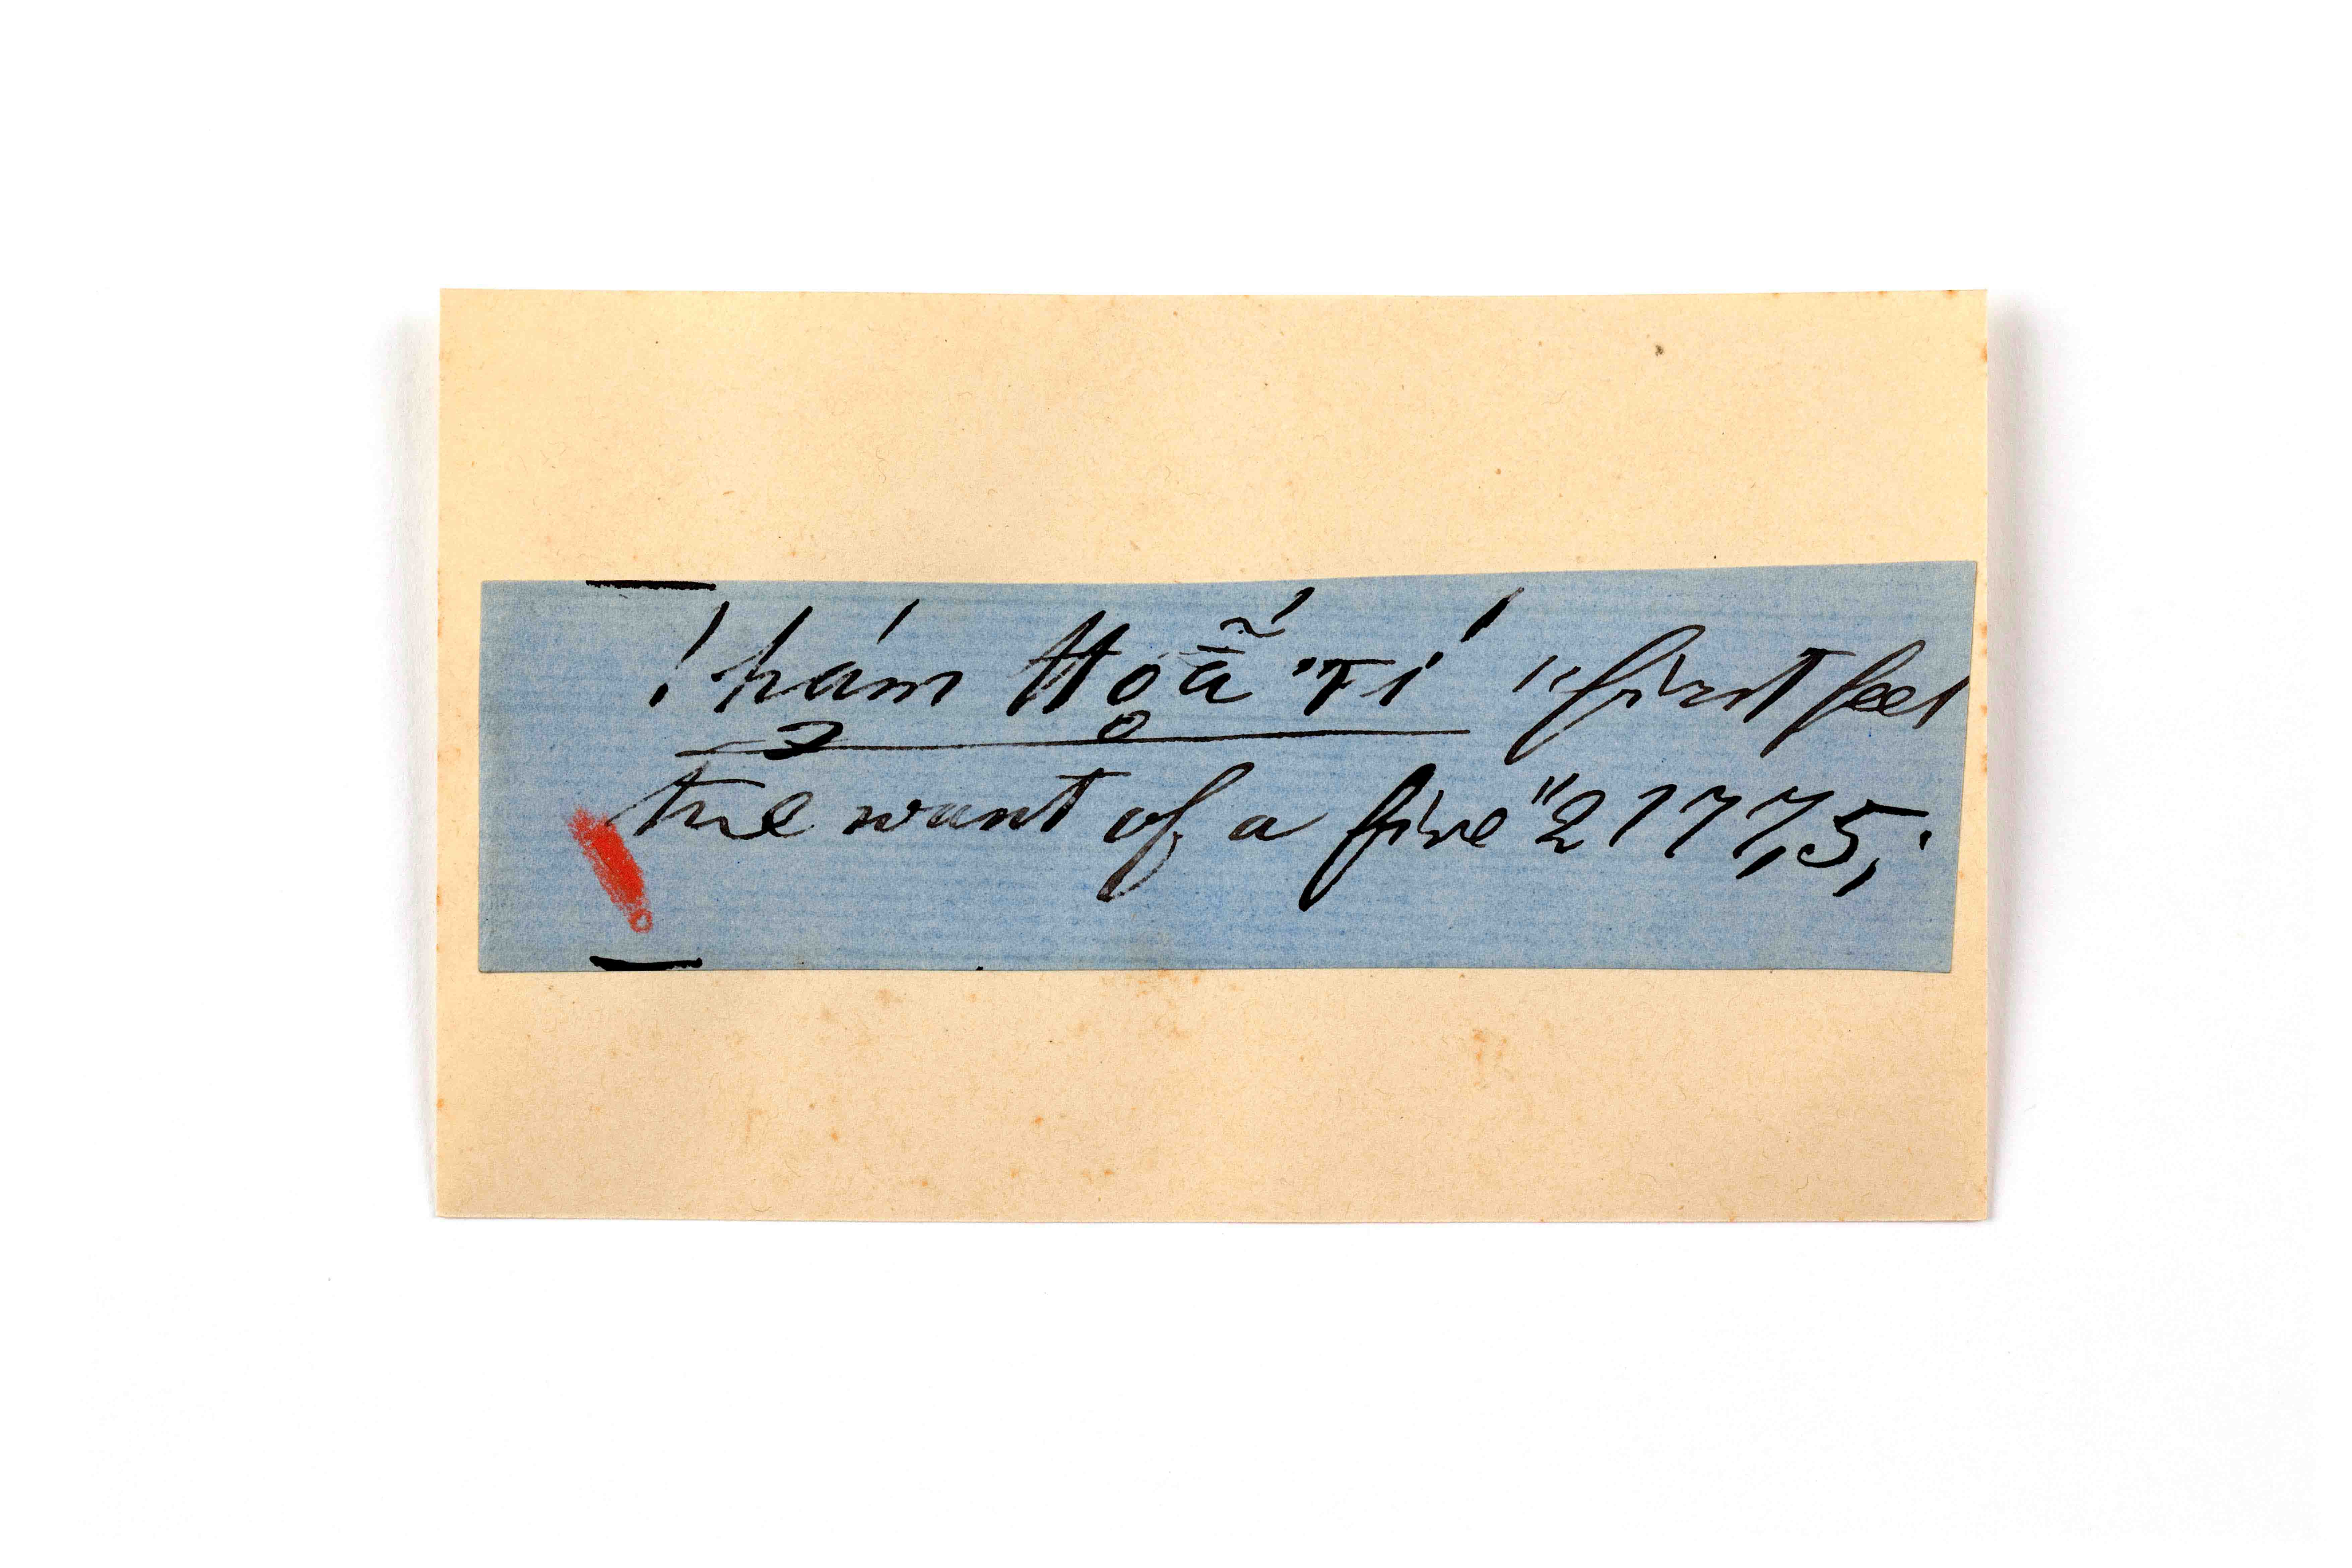 !hám ttoã́ 'Tí "first feel
the want of a fire" 2177,5;